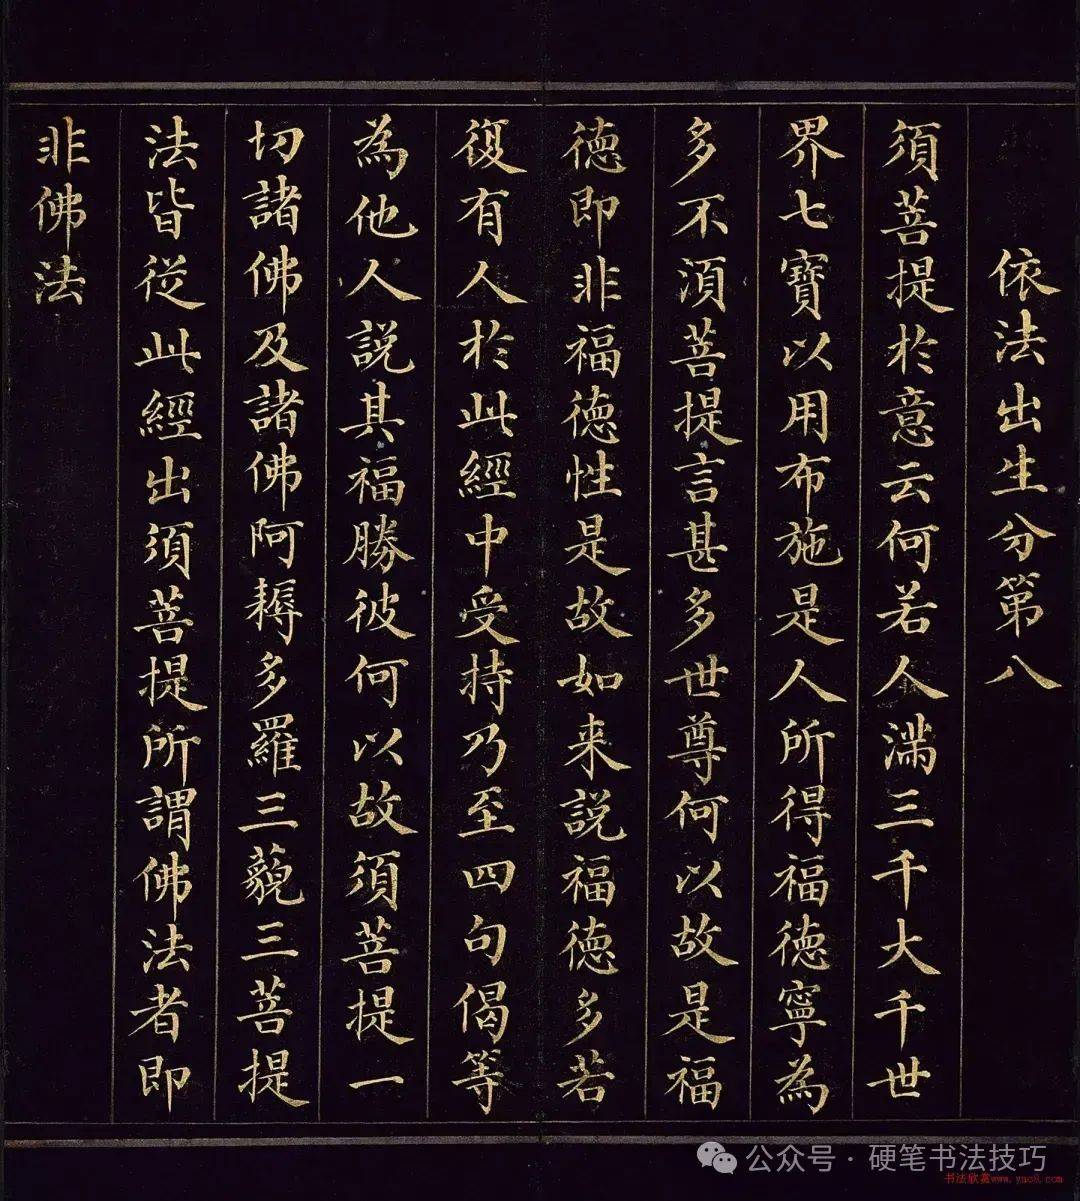 依法出生分第八
須菩提於意云何若人满三千大千世
界七寶以用布施是人所得福德寧為
多不須菩提言甚多世尊何以故是福
德即非福德性是故如来說福德多若
復有人於此經中受持乃至四句偈等
為他人說其福勝彼何以故須菩提一
切諸佛及諸佛阿耨多羅三藐三菩提
法皆從此經出須菩提所謂佛法者即
非佛法
公众号·硬笔书法技巧
书法欣赏www.yac8.com